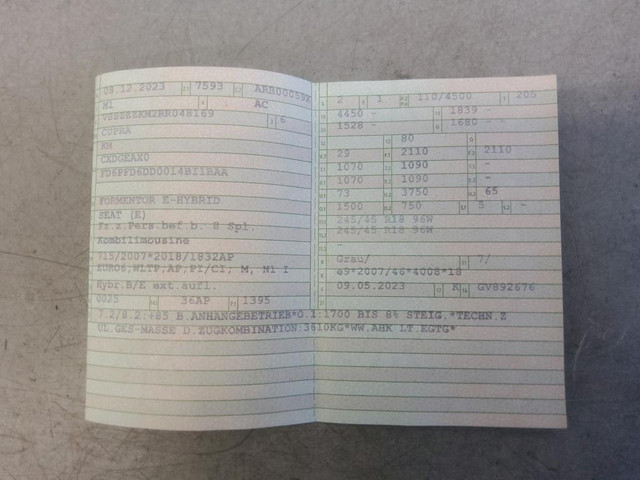 08.12.2023 7593 ARB00059X
M1 AC
VSSZZZKM2RR048169 6
CUPRA
KM
CXDGEAX0
FD6FFD6DD0014BI1BAA
FORMENTOR E-HYBRID
SEAT (E)
Fz.z.Pers.bef.b. 8 Spl.
Kombilimousine
715/2007*2018/1832AP
EURO6,WLTP,AP,PI/CI; M, N1 I
Hybr.B/E ext.aufl.
0025 36AP 1395
2 1 110/4500 205
4450 - 1839 -
1528 - 1680 -
80
29 2110 2110
1070 1090 -
1070 1090 -
73 3750 65
1500 750 5 -
245/45 R18 96W
245/45 R18 96W
-
Grau/ 7/
e9*2007/46*4008*18
09.05.2023 K GV892676
7.2/8.2:+85 B.ANHANGEBETRIEB*O.1:1700 BIS 8% STEIG.*TECHN.Z
UL.GES-MASSE D.ZUGKOMBINATION:3610KG*WW.AHK LT.EGTG*